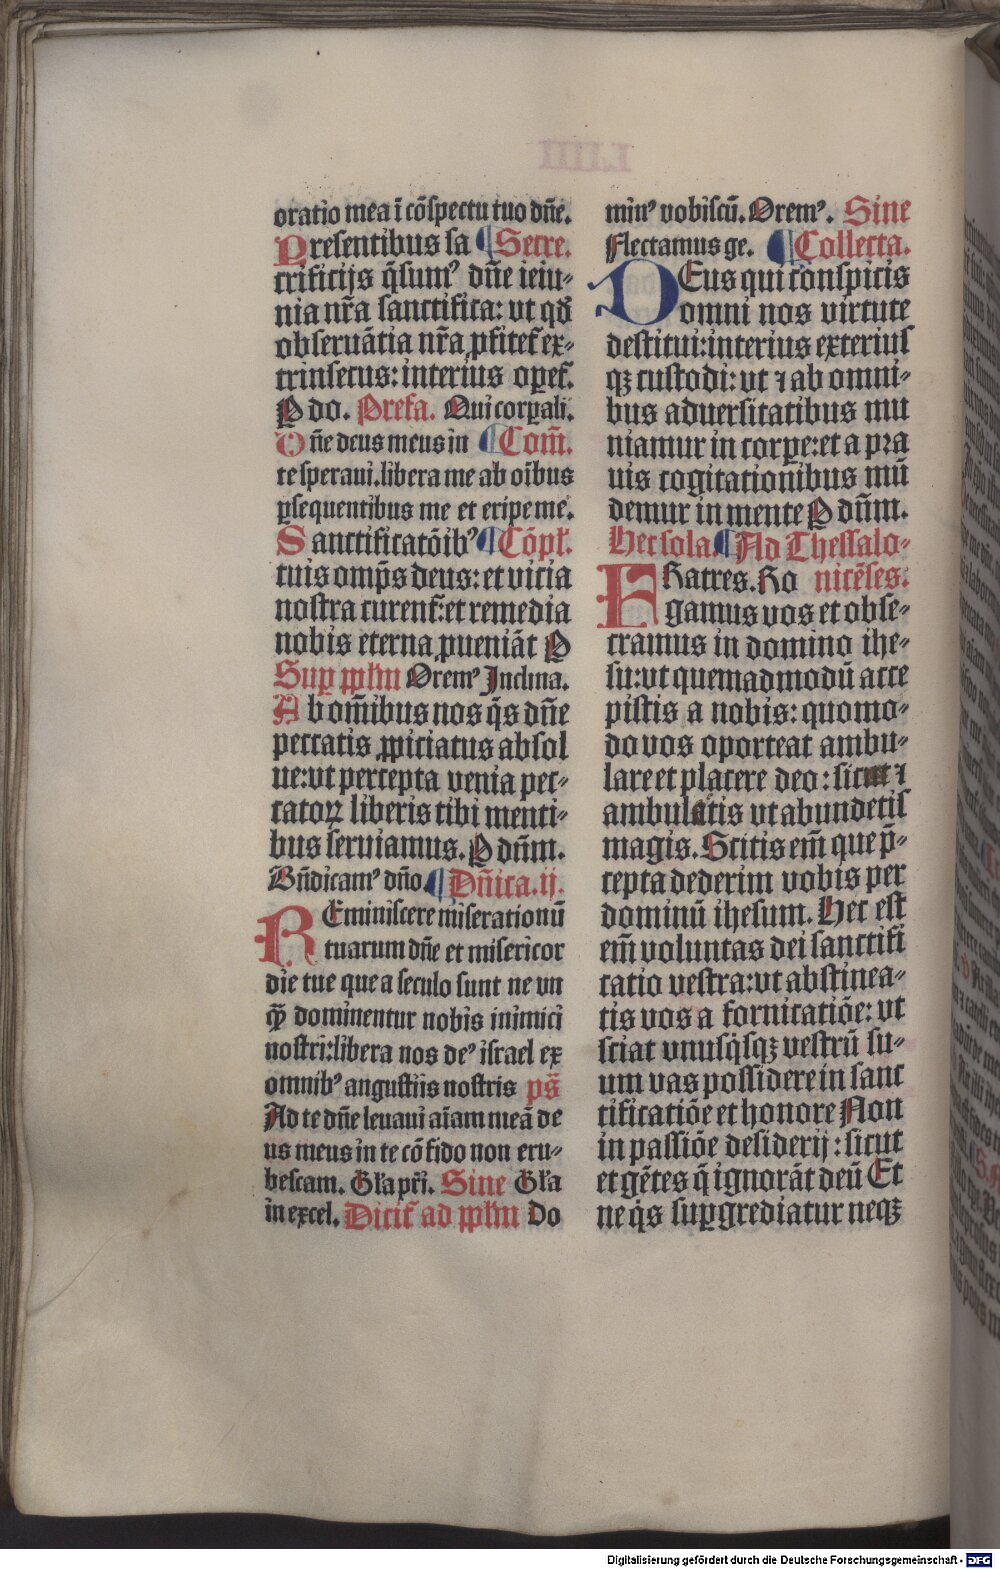 oratio mea ī cōspectu tuo dn̄e.
Presentibus sa ¶ Secre.
crificijs q̄sumꝰ dn̄e ieiu⸗
nia nr̄a sanctifica: vt qđ
obseruātia nr̄a ꝓfitetᷣ ex⸗
trinsecus: interius oꝑetᷣ.
P do. Prefa. Qui corꝑali.
Dn̄e deus meus in ¶ Com̄.
te speraui. libera me ab oībus
ꝑsequentibus me et eripe me.
Sanctificatōibꝰ ¶ Cōpł.
tuis omp̄s deus: et vicia
nostra curentᷣ: et remedia
nobis eterna ꝓueniāt P
Suꝑ pplm Oremꝰ Inclina.
Ab om̄ibus nos q̄s dn̄e
peccatis ꝓpiciatus absol
ue: vt percepta venia pec⸗
catoꝝ liberis tibi menti⸗
bus seruiamus. P dn̄m.
Bn̄dicamꝰ dn̄o ¶ Dn̄ica. ij.
Reminiscere miserationū
tuarum dn̄e et misericor
die tue que a seculo sunt ne vn
qꝫ̄ dominentur nobis inimici
nostri: libera nos deꝰ israel ex
omnibꝰ angustiis nostris ps̄
Ad te dn̄e leuaui aīam meā de
us meus in te cōfido non eru⸗
bescam. Gła pr̄i. Sine Gła
in excel. Dicitᷣ ad pplm Do
minꝰ vobiscū. Oremꝰ. Sine
Flectamus ge. ¶ Collecta.
DEus qui conspicis
omni nos virtute
destitui: interius exterius
qꝫ custodi: vt ⁊ ab omni⸗
bus aduersitatibus mu
niamur in corpe: et a pꝛa
uis cogitationibus mū
demur in mente P dn̄m.
Hec sola. ¶ Ad Thessalo⸗
FRatres. Ro nicēses.
gamus vos et obse⸗
cramus in domino ihe⸗
su: vt quemadmodū acce
pistis a nobis: quomo⸗
do vos oporteat ambu⸗
lare et placere deo: sicut ⁊
ambulatis vt abundetis
magis. Scitis em̄ que p̄⸗
cepta dederim vobis per
dominū ihesum. Hec est
em̄ voluntas dei sanctifi
catio vestra: vt abstinea⸗
tis vos a fornicatiōe: vt
sciat vnusq̇sqꝫ vestrū su⸗
um vas possidere in sanc
tificatiōe et honore Non
in passiōe desiderij: sicut
et gētes q̄ ignorāt deū Et
ne q̇s suꝑgrediatur neqꝫ
Digitalisierung gefördert durch die Deutsche Forschungsgemeinschaft - DFG